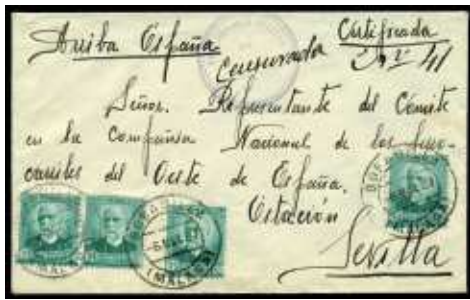 Arriba España
Certificada
Censurada
41
Señor. Representante del Comite
en la Compañia Nacional de los ferro-
carriles del Oeste de España.
Estación
Sevilla
(MALAGA)
(MALAGA)